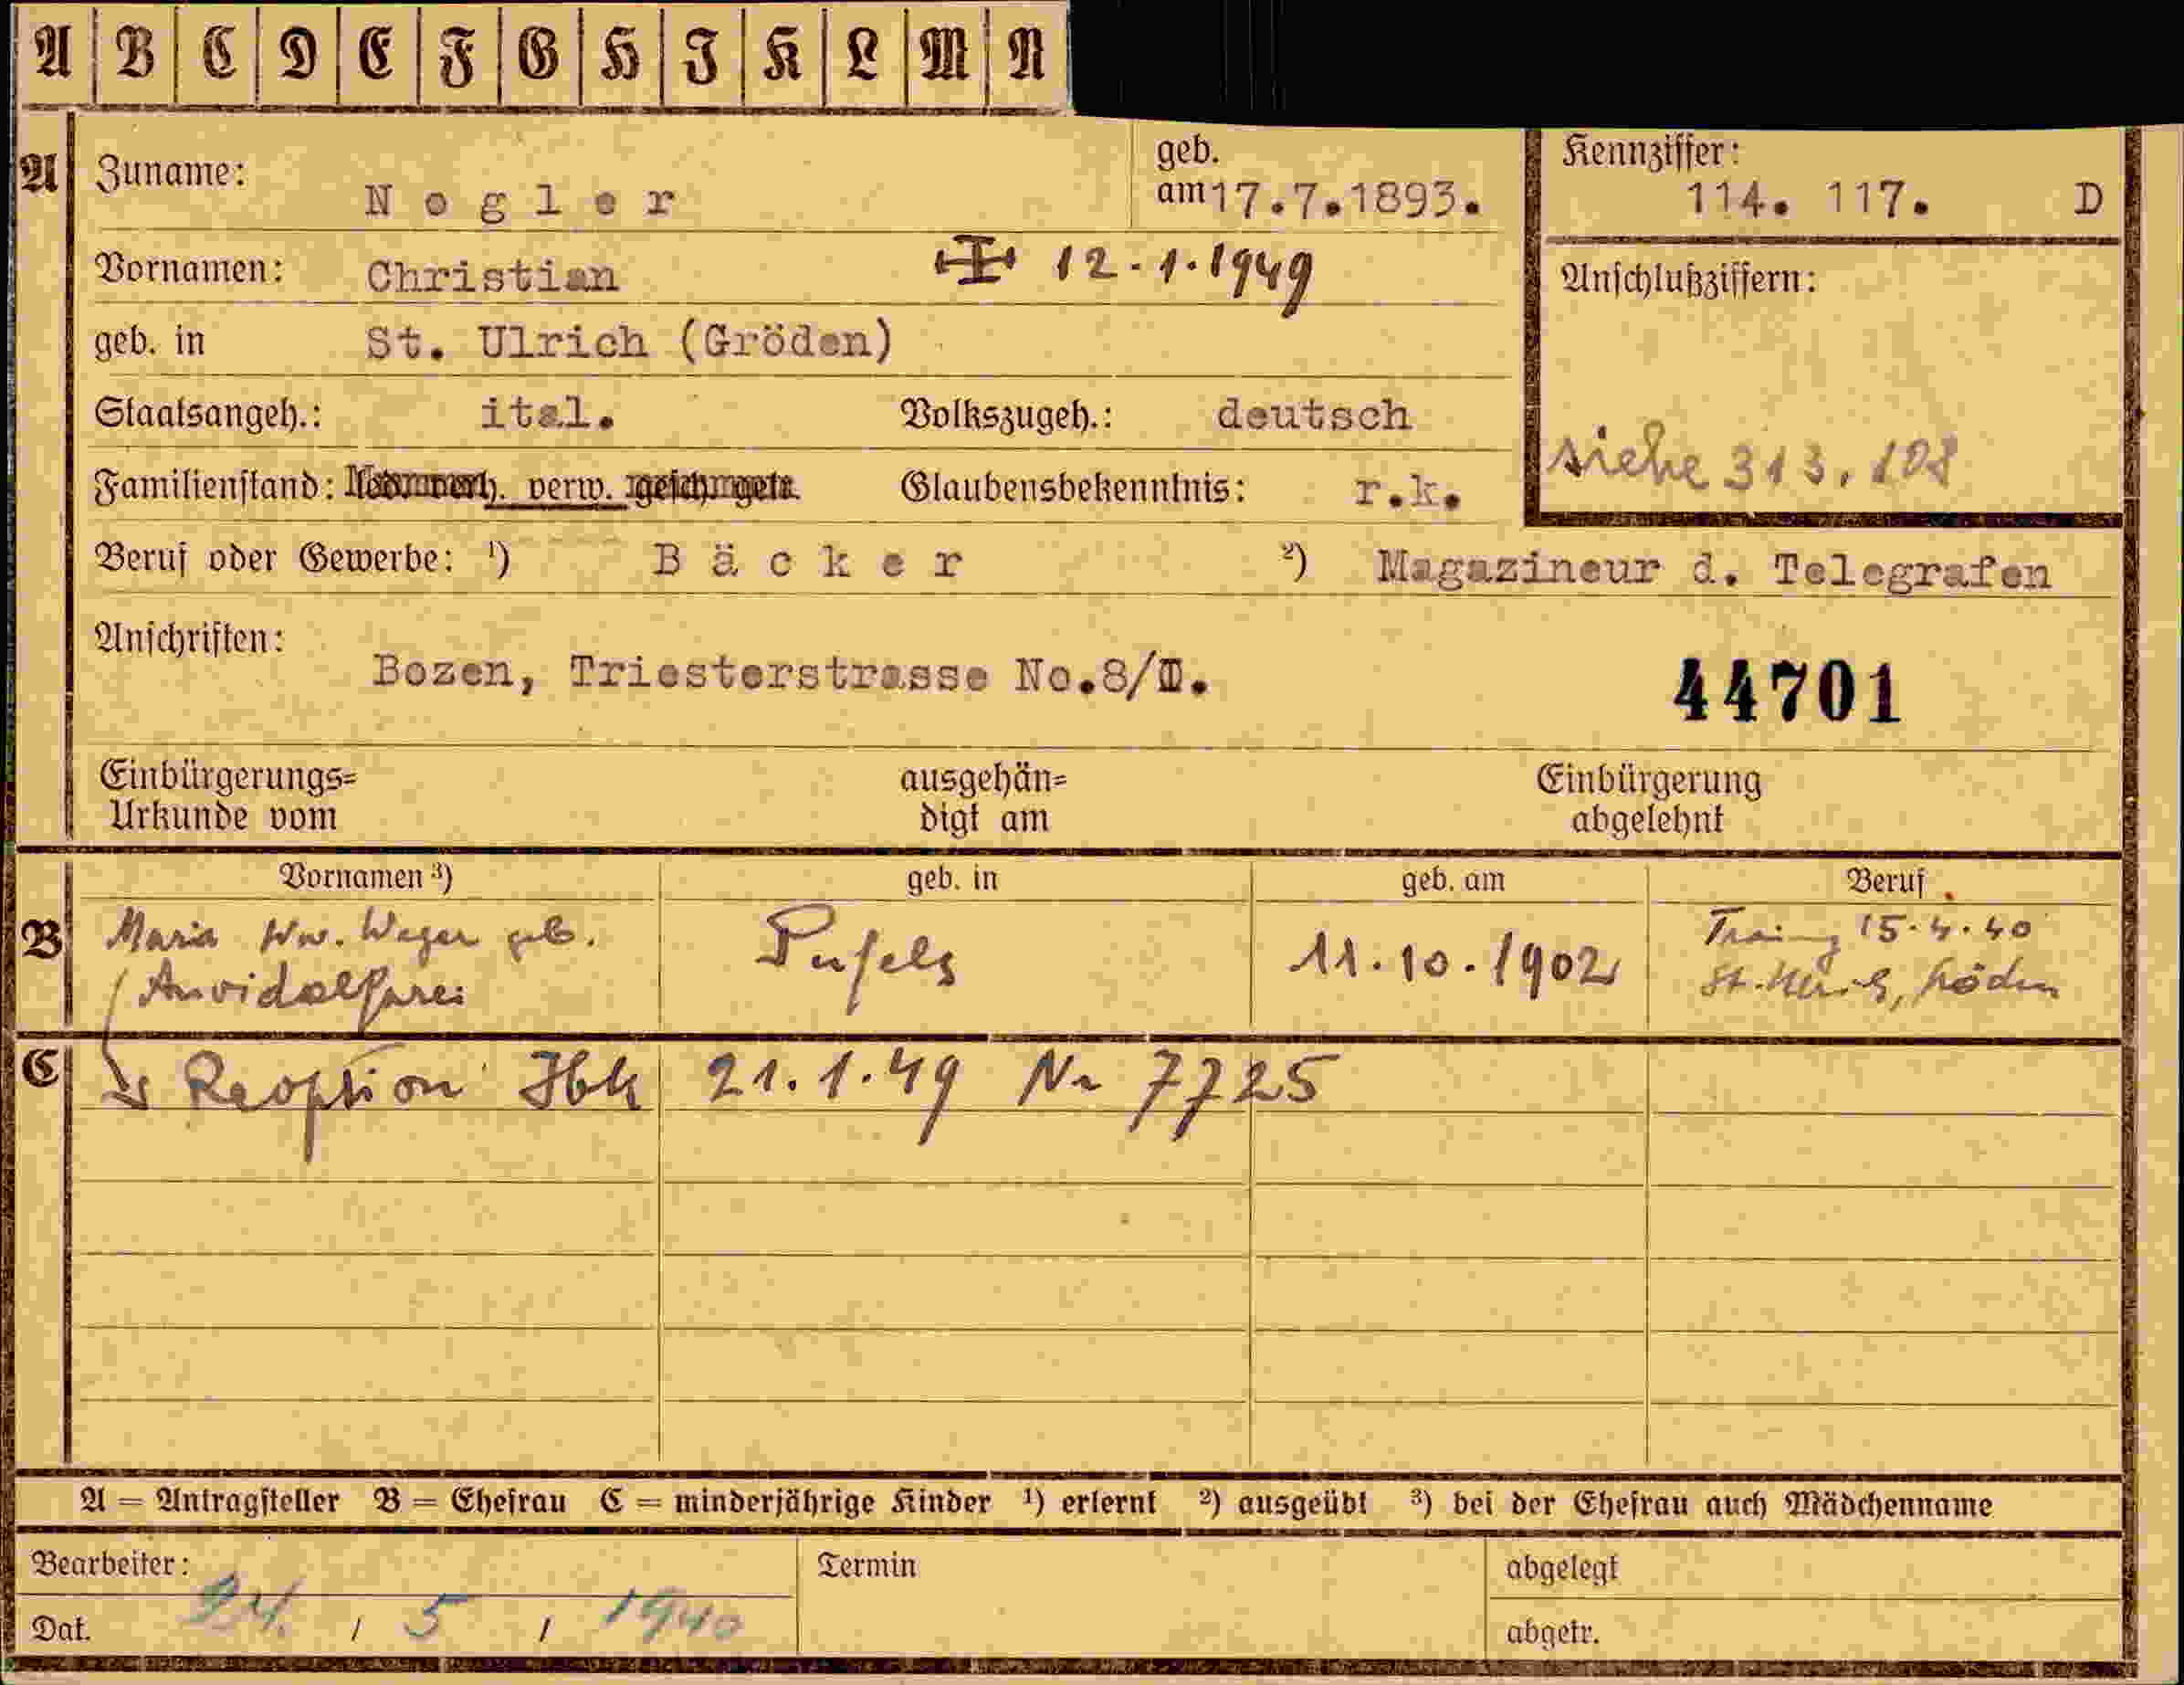 A B C D E F G H I K L M N
A Zuname: Nogler geb. am 17.7.1893. Kennziffer: 114. 117. D
Vornamen: Christian 12.1.1949 Anschlußziffern:
geb. in St. Ulrich (Gröden)
Staatsangeh.: ital. Volkszugeh.: deutsch
siehe 313.108
Familienstand: verw. Glaubensbekenntnis: r.k.
Beruf oder Gewerbe: ¹) Bäcker ²) Magazineur d. Telegrafen
Anschriften:
Bozen, Triesterstrasse No.8/II.
44701
Einbürgerungs= ausgehän= Einbürgerung
Urkunde vom digt am abgelehnt
Vornamen ³) geb. in geb. am Beruf
B Maria Ww. Wager geb. Pufels 11.10.1902 15.4.40
St. Ulrich, Gröden
C Reoption 21.1.49 Nr 7725
A = Antragsteller B = Ehefrau C = minderjährige Kinder ¹) erlernt ²) ausgeübt ³) bei der Ehefrau auch Mädchenname
Bearbeiter: Termin abgelegt
Dat. 24. / 5 / 1940 abgetr.